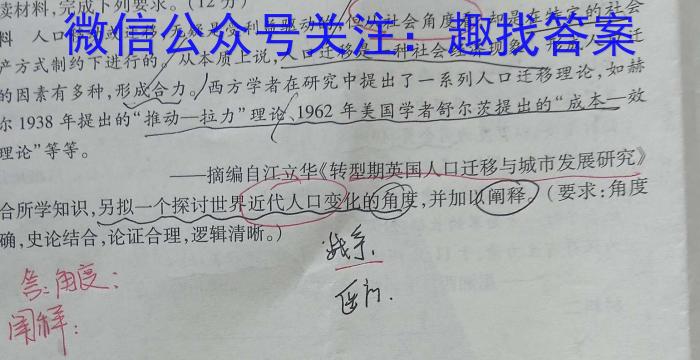 读材料,完成下列要求。(12分)
料 人口
微信公众号关注：趣找答案
产方式制约下进行的。从本质上说,人口迁移是一种社会经济现象
的因素有多种,形成合力。西方学者在研究中提出了一系列人口迁移理论,如赫
尔1938年提出的“推动—拉力”理论、1962年美国学者舒尔茨提出的“成本—效
理论”等等。
——摘编自江立华《转型期英国人口迁移与城市发展研究》
合所学知识,另拟一个探讨世界近代人口变化的角度,并加以阐释。(要求:角度
确,史论结合,论证合理,逻辑清晰。)
角度:
阐释: